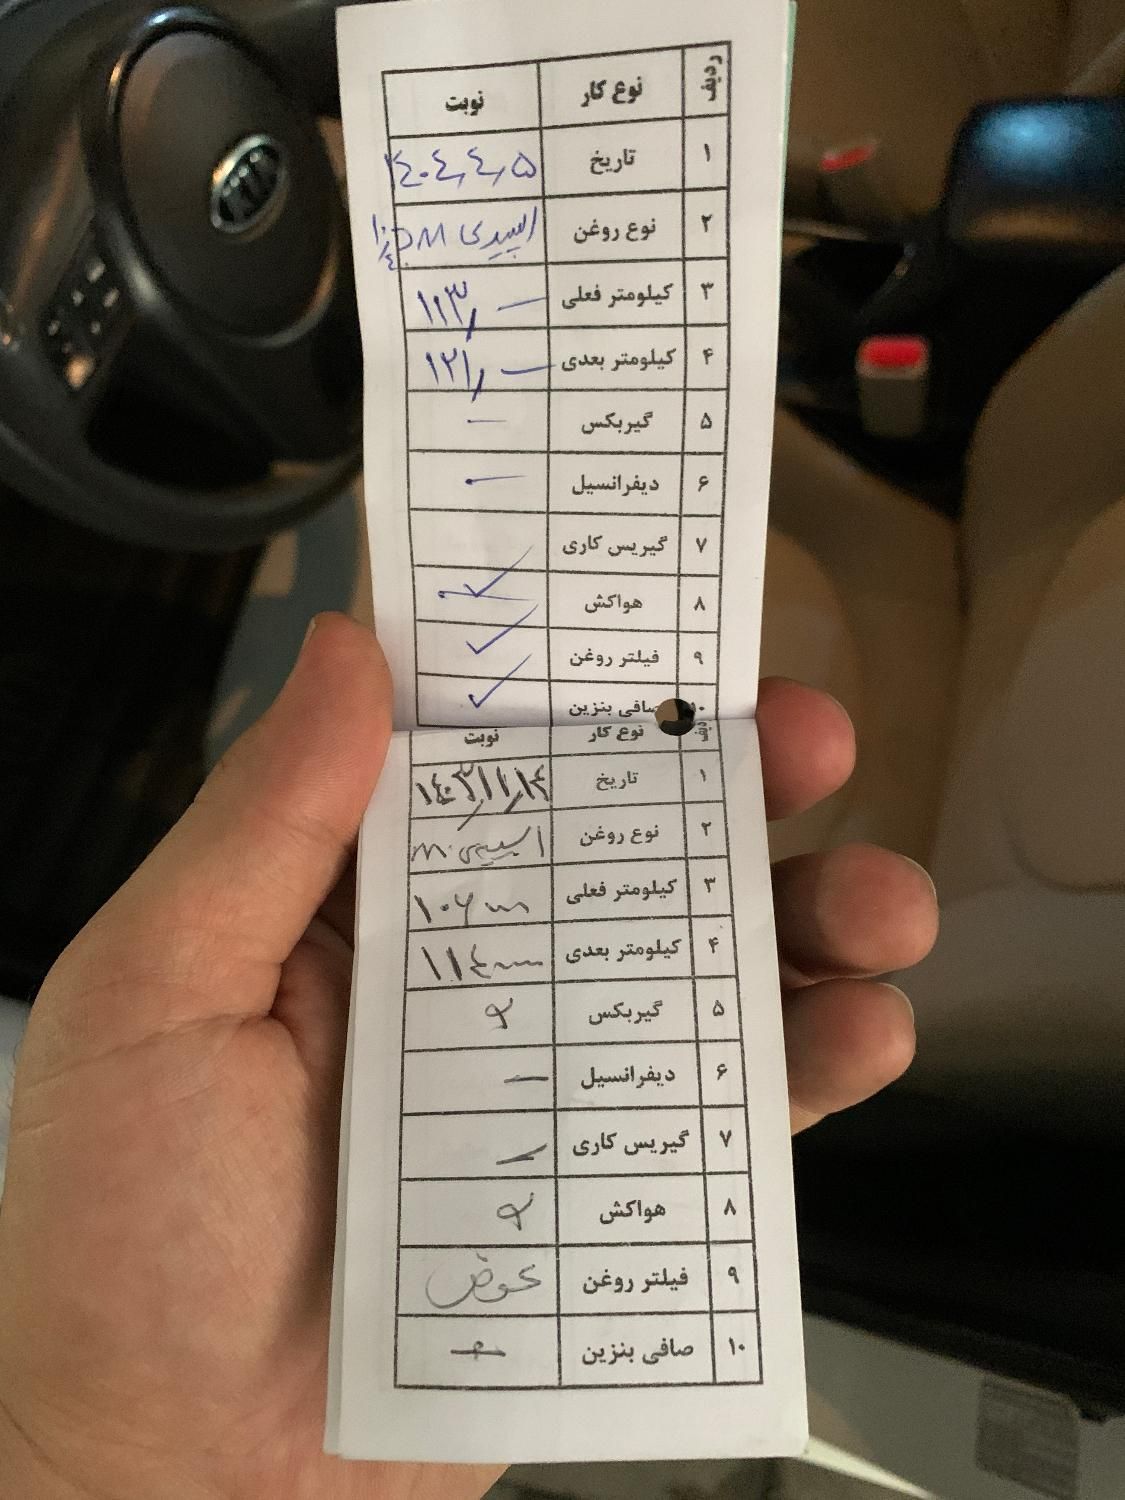 ردیف نوع کار نوبت
۱ تاریخ ۱۴۰۴,۴,۵
۲ نوع روغن اسپیدی M
۳ کیلومتر فعلی ۱۱۳, —
۴ کیلومتر بعدی ۱۲۱, —
۵ گیربکس —
۶ دیفرانسیل —
۷ گیریس کاری
۸ هواکش ✓
۹ فیلتر روغن ✓
۱۰ صافی بنزین ✓
ردیف نوع کار نوبت
۱ تاریخ ۱۴۰۳/۱۱/۱۴
۲ نوع روغن اسپیدی M
۳ کیلومتر فعلی ۱۰۶
۴ کیلومتر بعدی ۱۱۴
۵ گیربکس
۶ دیفرانسیل —
۷ گیریس کاری —
۸ هواکش
۹ فیلتر روغن عوض
۱۰ صافی بنزین
KIA